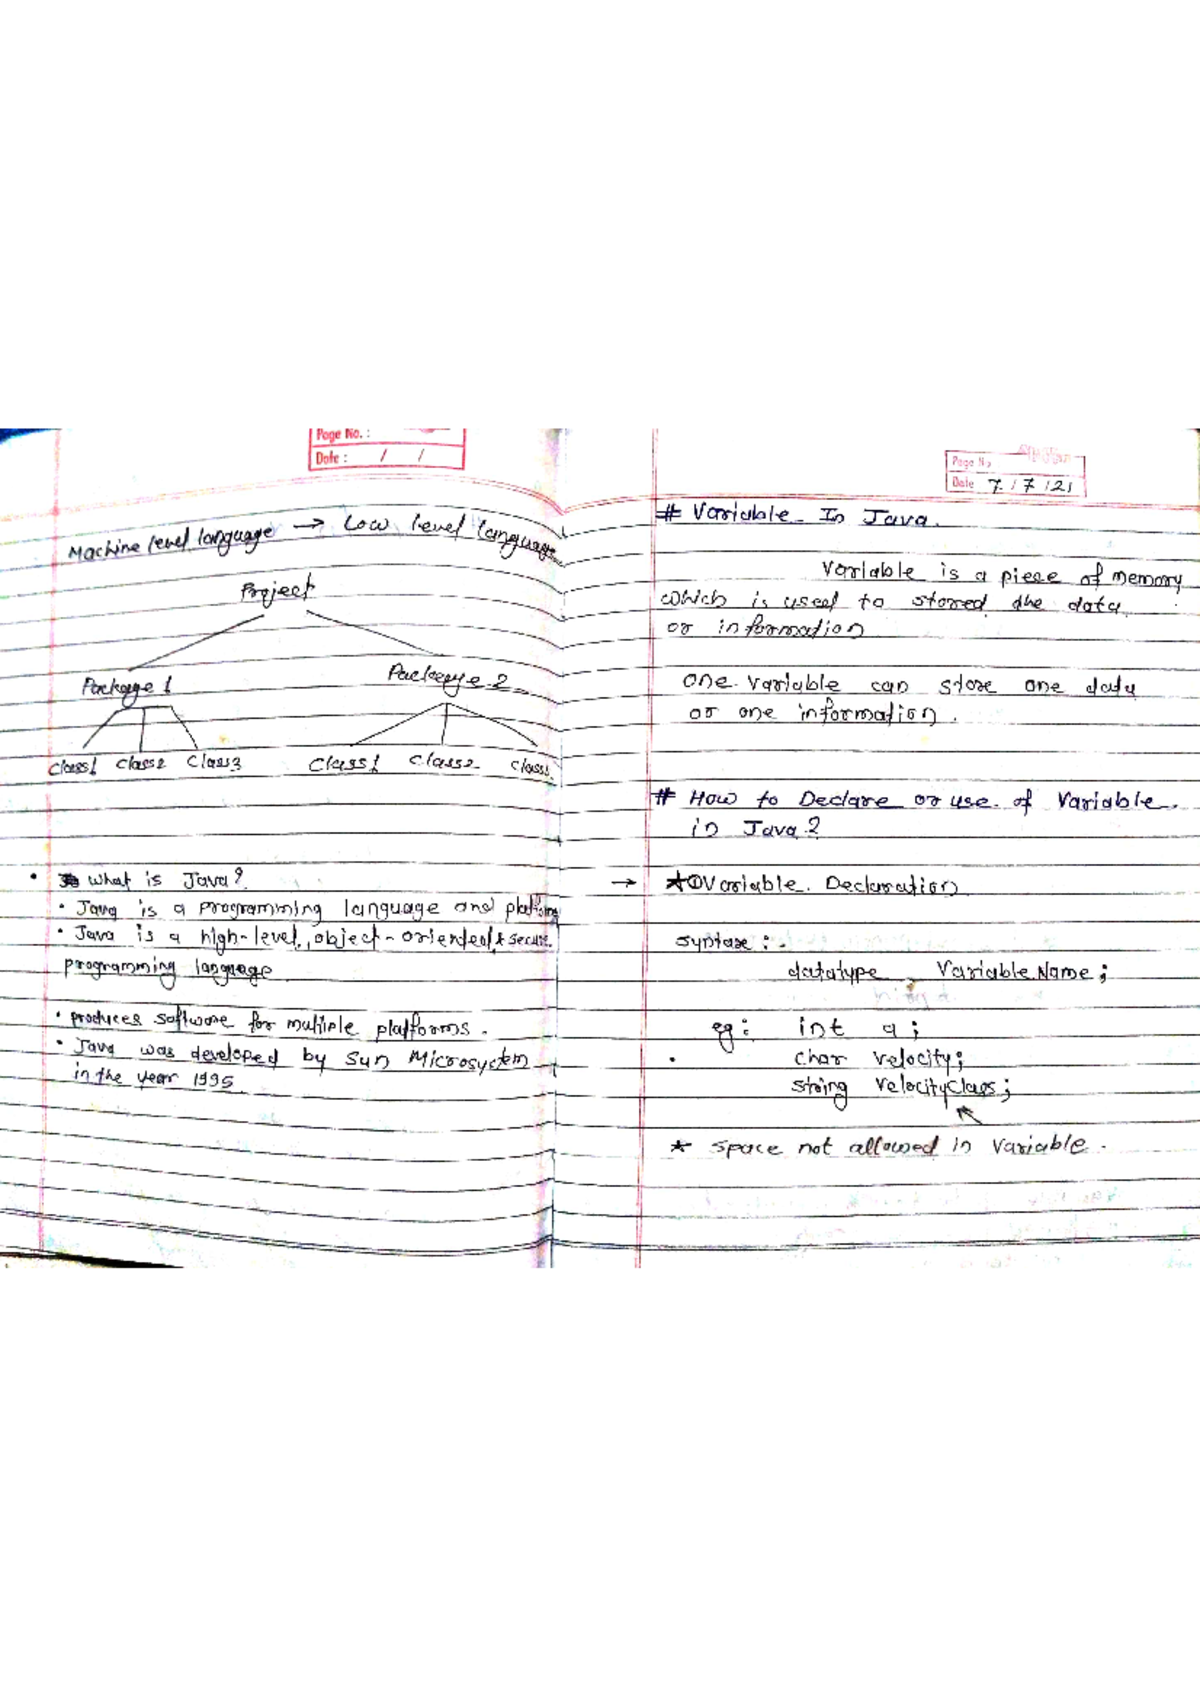 Page No. :
Date : / /
Machine level language → Low level language
Project
Package 1 Package 2
Class1 Class2 Class3 Class1 Class2 Class3
• What is Java?
• Java is a programming language and platform
• Java is a high-level, object-oriented & secure
programming language
• produces software for multiple platforms.
• Java was developed by Sun Microsystem
in the year 1995
Page No
Date 7/7/21
# Variable In Java.
Variable is a piece of memory
which is used to stored the data
or information
one variable can store one data
or one information.
# How to Declare or use of Variable.
in Java?
→ *① Variable Declaration
Syntax :-
datatype VariableName;
eg: int a;
char velocity;
string velocityClass;
* Space not allowed in Variable.